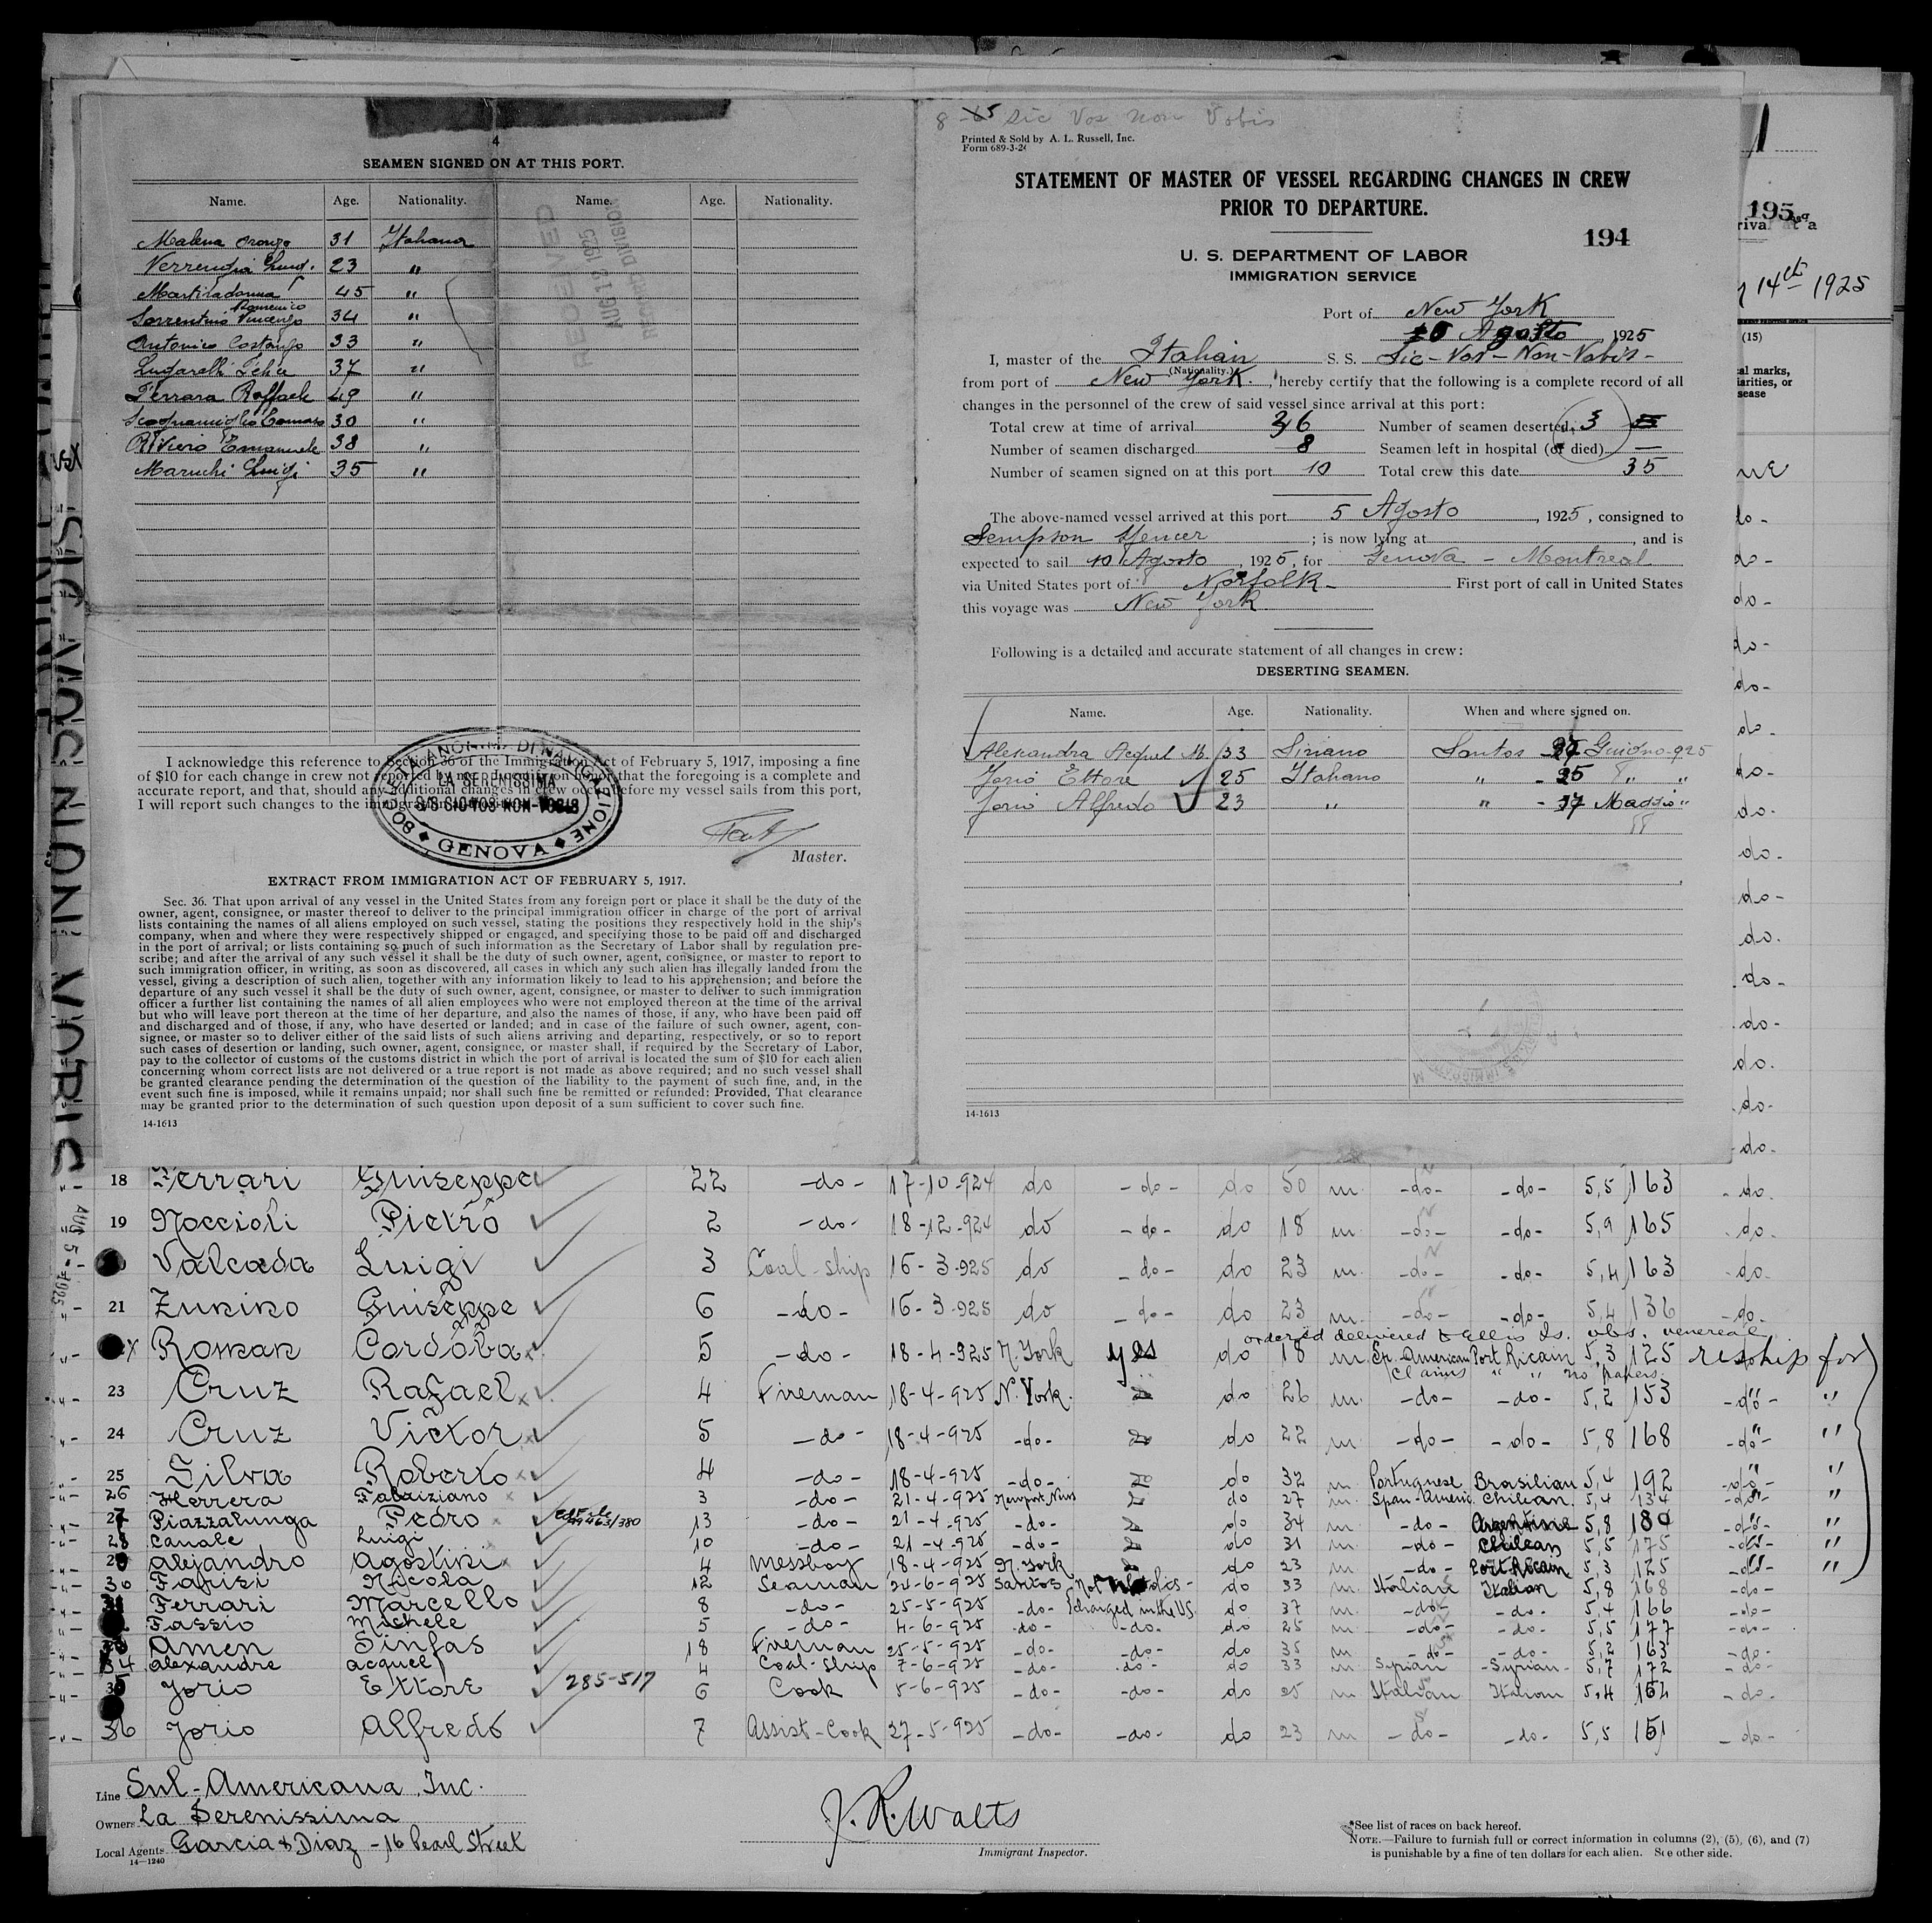 4
SEAMEN SIGNED ON AT THIS PORT.
Name. Age. Nationality. Name. Age. Nationality.
Malena Oronzo 31 Italiana
Verrengia Luid. 23 "
Martiradonna 45 "
Domenico
Sorrentino Vincenzo 34 "
Antonico Costanzo 33 "
Lugarelli Felice 37 "
Ferrara Raffaele 49 "
Scognamiglio 30 "
Riviero Emanuele 38 "
Maruchi Luigi 35 "
RECEIVED
AUG 12 1925
RECORDS DIVISION
I acknowledge this reference to Section 36 of the Immigration Act of February 5, 1917, imposing a fine
of $10 for each change in crew not reported by me, that the foregoing is a complete and
accurate report, and that, should any additional changes in crew occur before my vessel sails from this port,
I will report such changes to the
SOCIETA ANONIMA DI NAVIGAZIONE
LA SERENISSIMA
S/S SIC-VOS-NON-VOBIS
GENOVA
Master.
EXTRACT FROM IMMIGRATION ACT OF FEBRUARY 5, 1917.
Sec. 36. That upon arrival of any vessel in the United States from any foreign port or place it shall be the duty of the
owner, agent, consignee, or master thereof to deliver to the principal immigration officer in charge of the port of arrival
lists containing the names of all aliens employed on such vessel, stating the positions they respectively hold in the ship's
company, when and where they were respectively shipped or engaged, and specifying those to be paid off and discharged
in the port of arrival; or lists containing so much of such information as the Secretary of Labor shall by regulation pre-
scribe; and after the arrival of any such vessel it shall be the duty of such owner, agent, consignee, or master to report to
such immigration officer, in writing, as soon as discovered, all cases in which any such alien has illegally landed from the
vessel, giving a description of such alien, together with any information likely to lead to his apprehension; and before the
departure of any such vessel it shall be the duty of such owner, agent, consignee, or master to deliver to such immigration
officer a further list containing the names of all alien employees who were not employed thereon at the time of the arrival
but who will leave port thereon at the time of her departure, and also the names of those, if any, who have been paid off
and discharged and of those, if any, who have deserted or landed; and in case of the failure of such owner, agent, con-
signee, or master so to deliver either of the said lists of such aliens arriving and departing, respectively, or so to report
such cases of desertion or landing, such owner, agent, consignee, or master shall, if required by the Secretary of Labor,
pay to the collector of customs of the customs district in which the port of arrival is located the sum of $10 for each alien
concerning whom correct lists are not delivered or a true report is not made as above required; and no such vessel shall
be granted clearance pending the determination of the question of the liability to the payment of such fine, and, in the
event such fine is imposed, while it remains unpaid; nor shall such fine be remitted or refunded: Provided, That clearance
may be granted prior to the determination of such question upon deposit of a sum sufficient to cover such fine.
14-1613
8-5 Sic Vos Non Vobis
Printed & Sold by A. L. Russell, Inc.
Form 689-3-24
STATEMENT OF MASTER OF VESSEL REGARDING CHANGES IN CREW
PRIOR TO DEPARTURE.
194
U. S. DEPARTMENT OF LABOR
IMMIGRATION SERVICE
Port of New York
10 Agosto, 1925
I, master of the Italian S. S. Sic-Vos-Non-Vobis-
(Nationality.)
from port of New York., hereby certify that the following is a complete record of all
changes in the personnel of the crew of said vessel since arrival at this port:
Total crew at time of arrival 36 Number of seamen deserted 3
Number of seamen discharged 8 Seamen left in hospital (or died) —
Number of seamen signed on at this port 10 Total crew this date 35
The above-named vessel arrived at this port 5 Agosto, 1925, consigned to
Sempson Spencer; is now lying at , and is
expected to sail 10 Agosto, 1925, for Genova - Montreal
via United States port of Norfolk- First port of call in United States
this voyage was New York
Following is a detailed and accurate statement of all changes in crew:
DESERTING SEAMEN.
Name. Age. Nationality. When and where signed on.
Alexandra Acquel M. 33 Siriano Santos 27 Guigno-925
Jorio Ettore 25 Italiano " - 25 " "
Jorio Alfredo 23 " " - 27 Maggio "
14-1613
195
14th 1925
(15)
SIC VOS NON VOBIS
AUG 5-1925
18 Ferrari Guiseppe 22 -do- 17-10-924 do -do- do 50 m -do- -do- 5,5 163 -do.
19 Noccioli Pietro 2 -do- 18-12-924 do -do- do 18 m -do- -do- 5,9 165 -do.
Valcada Luigi 3 Coal-ship 16-3-925 do -do- do 23 m -do- -do- 5,4 163 -do.
21 Zunino Guiseppe 6 -do- 16-3-925 do -do- do 23 m -do- -do- 5,4 136 -do.
ordered delivered to Ellis Is. obs. venereal
Roman Cordoba 5 -do- 18-4-925 N. York yes do 18 m Sp. American Port Ricain 5,3 125 reship for
Claims " " no papers.
23 Cruz Rafael 4 Fireman 18-4-925 N. York. do 26 m -do- -do- 5,2 153 -do- "
24 Cruz Victor 5 -do- 18-4-925 -do- do 22 m -do- -do- 5,8 168 -do- "
25 Silva Roberto 4 -do- 18-4-925 -do- do 32 m Portuguese Brasilian 5,4 192 -do- "
26 Herrera Fabriziano 3 -do- 21-4-925 Newport News do 27 m Span-Americ. Chilean. 5,4 134 -do- "
27 Piazzalunga Pedro 99463/380 13 -do- 21-4-925 -do- do 34 m -do- Argentine 5,8 180 -do- "
28 Canale Luigi 10 -do- 21-4-925 -do- do 31 m -do- Chilean 5,5 175 -do- "
29 Alejandro Agostini 4 Messboy 18-4-925 N. York do 23 m -do- Port Ricain 5,3 125 -do- "
30 Farisi Nicola 12 Seaman 24-6-925 Santos do 33 m Italian Italian 5,8 168 -do-
31 Ferrari Marcello 8 -do- 25-5-925 -do- discharged in the US. do 37 m -do- -do- 5,4 166 -do-
Fassio Michele 5 -do- 4-6-925 -do- -do- do 25 m -do- -do- 5,5 177 -do-
Amen Sinfas 18 Fireman 25-5-925 -do- -do- do 35 m -do- -do- 5,2 163 -do-
34 Alexandre Acquel 4 Coal-Ship 7-6-925 -do- -do- do 33 m Syrian -Syrian- 5,7 172 -do-
35 Jorio Ettore 285-517 6 Cook 5-6-925 -do- -do- do 25 m Italian Italian 5,4 154 -do.
36 Jorio Alfredo 7 Assist-Cook 27-5-925 -do- -do- do 23 m -do- -do- 5,5 151 -do-
Line Sul-Americana Inc.
Owners La Serenissima
Local Agents Garcia & Diaz - 16 Pearl Street
14-1240
J. R. Walts
Immigrant Inspector.
*See list of races on back hereof.
NOTE.—Failure to furnish full or correct information in columns (2), (5), (6), and (7)
is punishable by a fine of ten dollars for each alien. See other side.